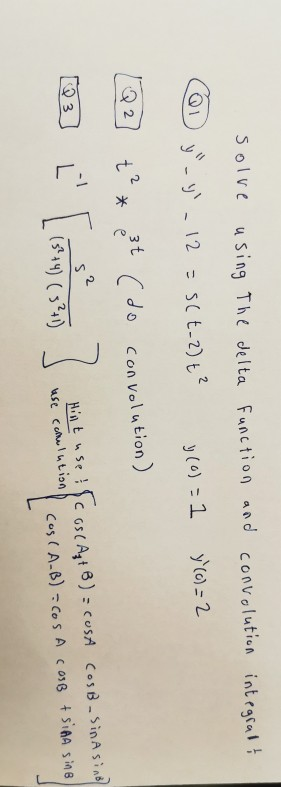 Solve using The delta Function and convolution integral!
Q1 y'' - y' - 12 = s(t-2)t² y(0) = 1 y'(0) = 2
Q2 t² * e^3t (do convolution)
Q3 L⁻¹ [ s² / (s²+4)(s²+1) ]
Hint use: [cos(A+B) = cosA cosB - sinA sinB
use convolution [cos(A-B) = cosA cosB + sinA sinB]